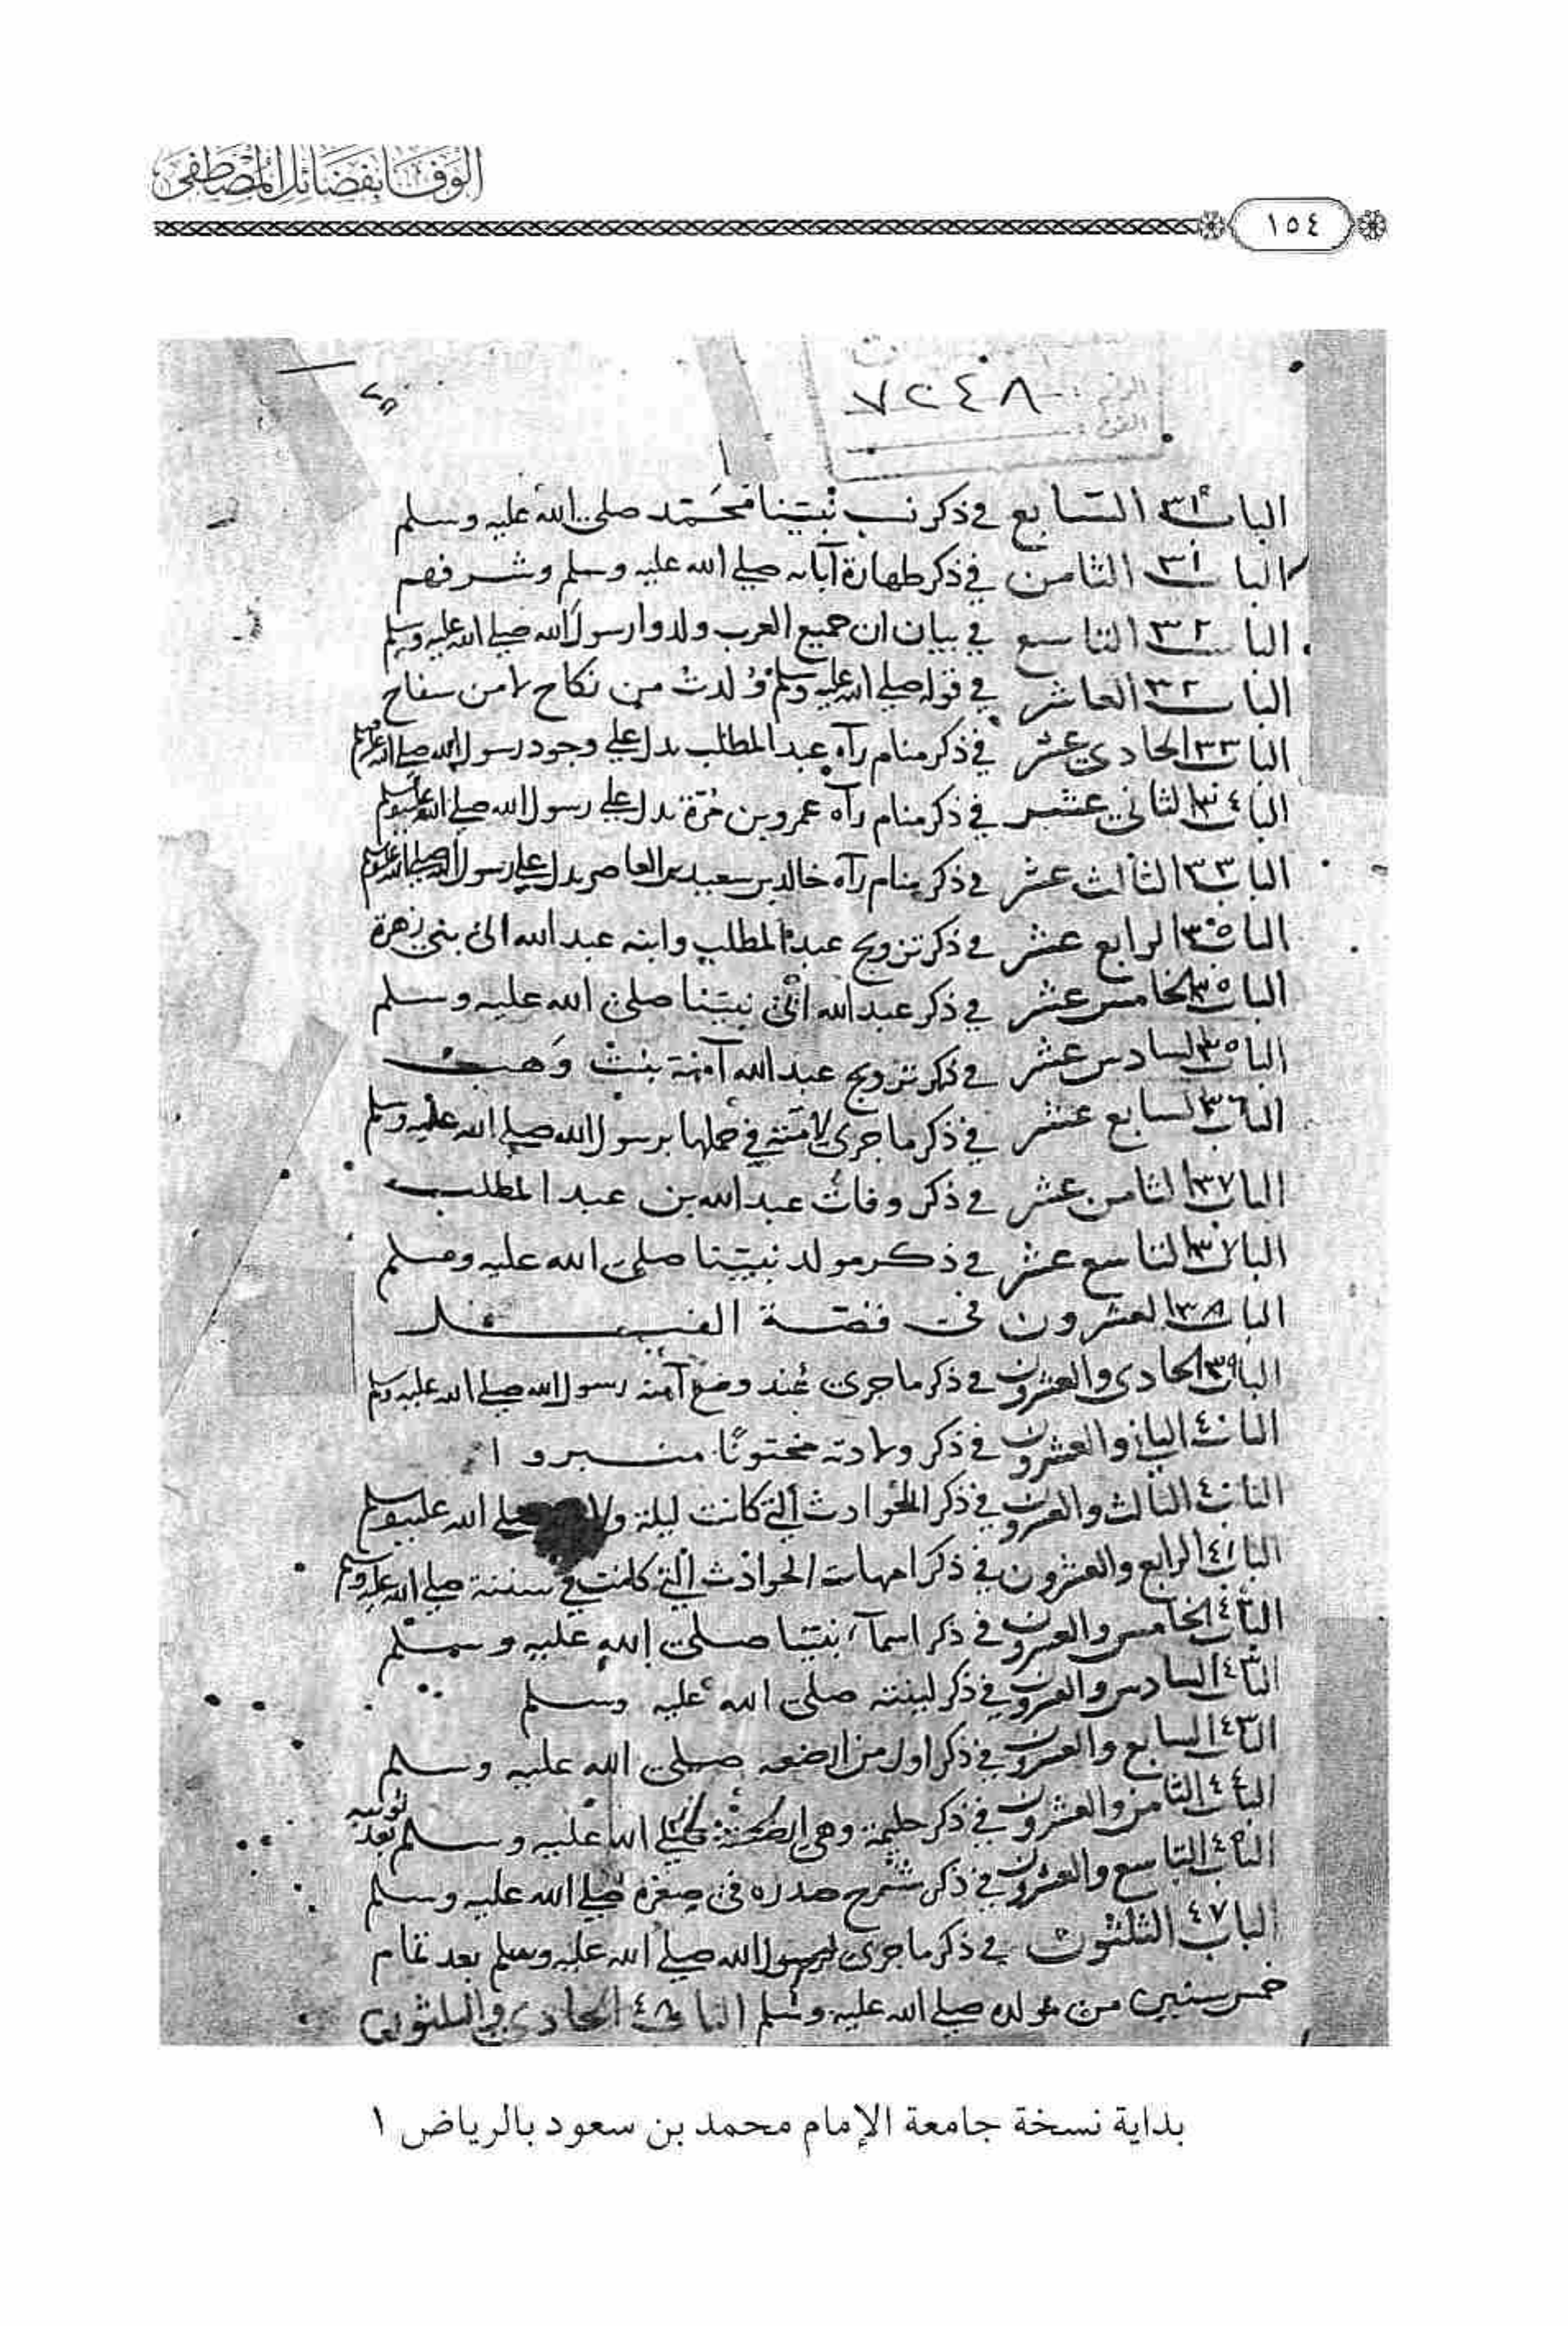 الوفا بفضائل المصطفى
١٥٤
٧٢٤٨
الباب ٣١ السابع في ذكر نسب نبينا محمد صلى الله عليه وسلم
الباب ٣١ الثامن في ذكر طهارة آبائه صلى الله عليه وسلم وشرفهم
الباب ٣٢ التاسع في بيان ان جميع العرب ولدوا رسول الله صلى الله عليه وسلم
الباب ٣٢ العاشر في قوله صلى الله عليه وسلم وُلدت من نكاح لا من سفاح
الباب ٣٣ الحادي عشر في ذكر منام رآه عبد المطلب يدل على وجود رسول الله صلى الله عليه وسلم
الباب ٣٤ الثاني عشر في ذكر منام رآه عمرو بن مُرّة يدل على رسول الله صلى الله عليه وسلم
الباب ٣٣ الثالث عشر في ذكر منام رآه خالد بن سعيد بن العاص يدل على رسول الله صلى الله عليه وسلم
الباب ٣٥ الرابع عشر في ذكر تزويج عبد المطلب وابنه عبد الله الى بني زهرة
الباب ٣٥ الخامس عشر في ذكر عبد الله نبينا صلى الله عليه وسلم
الباب ٣٥ السادس عشر في ذكر تزويج عبد الله آمنة بنت وَهب
الباب ٣٦ السابع عشر في ذكر ما جرى لآمنة في حملها برسول الله صلى الله عليه وسلم
الباب ٣٧ الثامن عشر في ذكر وفات عبد الله بن عبد المطلب
الباب ٣٧ التاسع عشر في ذكر مولد نبينا صلى الله عليه وسلم
الباب ٣٨ العشرون في قصة الفيل
الباب ٣٩ الحادي والعشرون في ذكر ما جرى عند وضع آمنة رسول الله صلى الله عليه وسلم
الباب ٤٠ الثاني والعشرون في ذكر ولادته مختونًا مسرورا
الباب ٤٠ الثالث والعشرون في ذكر الحوادث التي كانت ليلة صلى الله عليه وسلم
الباب ٤١ الرابع والعشرون في ذكر امهات الحوادث التي كانت في صلى الله عليه وسلم
الباب ٤٢ الخامس والعشرون في ذكر اسماء نبينا صلى الله عليه وسلم
الباب ٤٣ السادس والعشرون في ذكر صلى الله عليه وسلم
الباب ٤٣ السابع والعشرون في ذكر اول من ارضعه صلى الله عليه وسلم
الباب ٤٤ الثامن والعشرون في ذكر حليمة وهي صلى الله عليه وسلم
الباب التاسع والعشرون في ذكر شرح صدره في صغره صلى الله عليه وسلم
الباب ٤٧ الثلثون في ذكر ما جرى لرسول الله صلى الله عليه وسلم بعد تمام
خمس سنين من مولده صلى الله عليه وسلم الباب ٤٨ الحادي والثلثون
بداية نسخة جامعة الإمام محمد بن سعود بالرياض ١